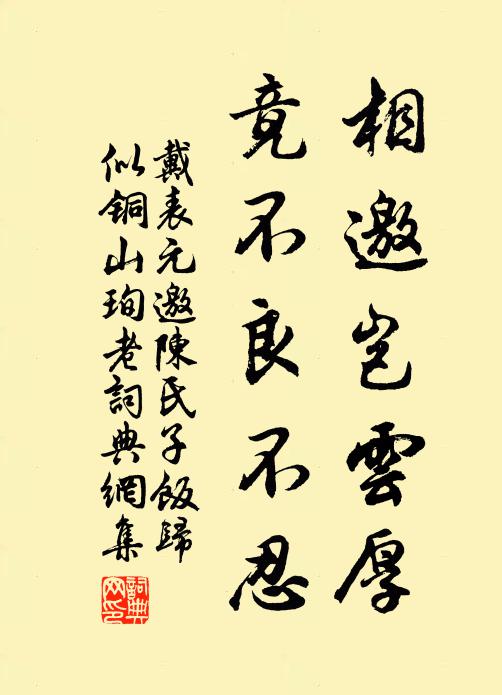 相邀岂雲厚
竟不良不忍
戴表元邀陳氏子飯歸
似铜山珣老詞典網集
詞典